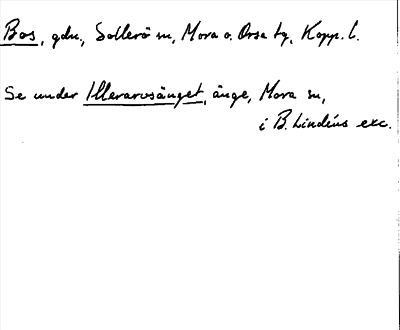 Bos, gdn, Sollerö sn, Mora o. Orsa tg, Kopp. l.
Se under Illerarvsänget, änge, Mora sn,
i B. Lindéns exc.